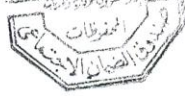 المحفوظات
صندوق الضمان الاجتماعي